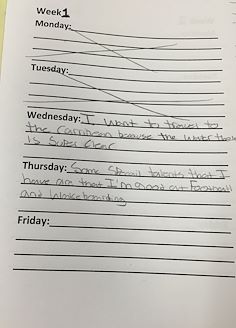 Week 1
Monday:
Tuesday:
Wednesday: I want to travel to
the Carribean because the water there
is super clear
Thursday: Some special talents that I
have are that I'm good at Football
and Wakeboarding
Friday: